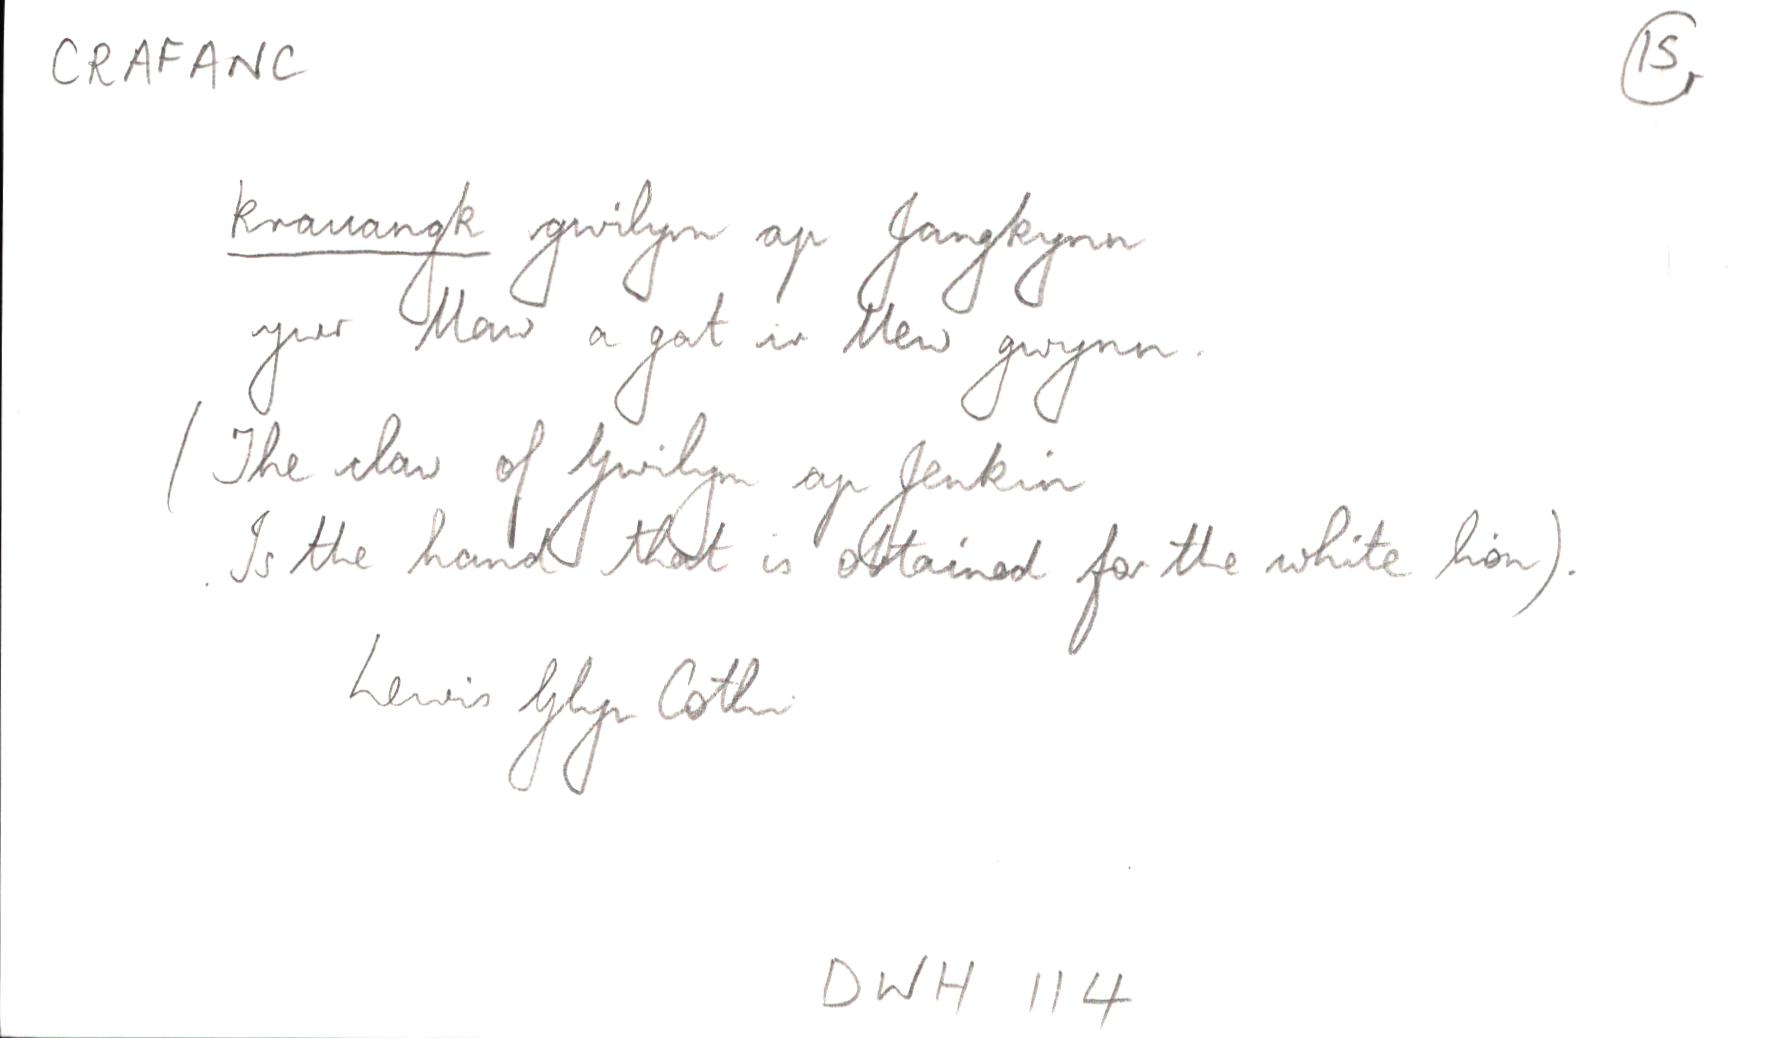 CRAFANC
15
krauangk gwilym ap Jangkynn
yw'r llaw a gat ir llew gwynn.
(The claw of Gwilym ap Jenkin
Is the hand that is obtained for the white lion).
Lewis Glyn Cothi
DWH 114